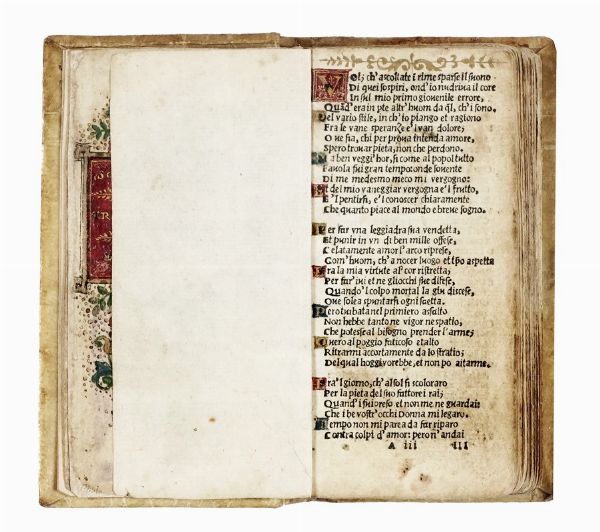 VOi, ch'ascoltate i rime sparse il suono
Di quei sospiri, ond'io nudriva il core
In sul mio primo giovenile errore,
Quād'era in pte altr'huom da ql, ch'i sono.
Del vario stile, in ch'io piango et ragiono
Fra le vane speranze e'l van dolore;
Ove sia, chi per prova intenda amore,
Spero trovar pieta, non che perdono.
Ma ben veggi'hor, si come al popol tutto
Favola fui gran tempo: onde sovente
Di me medesmo meco mi vergogno:
Et del mio vaneggiar vergogna e'l frutto,
E'l pentirsi, e'l conoscer chiaramente
Che quanto piace al mondo e breve sogno.
Per far una leggiadra sua vendetta,
Et punir in un di ben mille offese,
Celatamente amor l'arco riprese,
Com'huom, ch'a nocer luogo et tēpo aspetta
Era la mia virtute al cor ristretta;
Per far'ivi et ne gliocchi sue difese,
Quando'l colpo mortal la giu discese,
Ove solea spuntarsi ogni saetta.
Pero turbata nel primiero assalto
Non hebbe tanto ne vigor ne spatio,
Che potesse al bisogno prender l'arme;
Overo al poggio faticoso et alto
Ritrarmi accortamente da lo stratio;
Del qual hoggi vorrebbe, et non po aitarme.
Era'l giorno, ch'al sol si scoloraro
Per la pieta del suo fattore i rai;
Quand'i fui preso et non me ne guardai:
Che i be vostr'occhi Donna mi legaro.
Tempo non mi parea da far riparo
Contra colpi d'amor: pero n'andai
A iii III